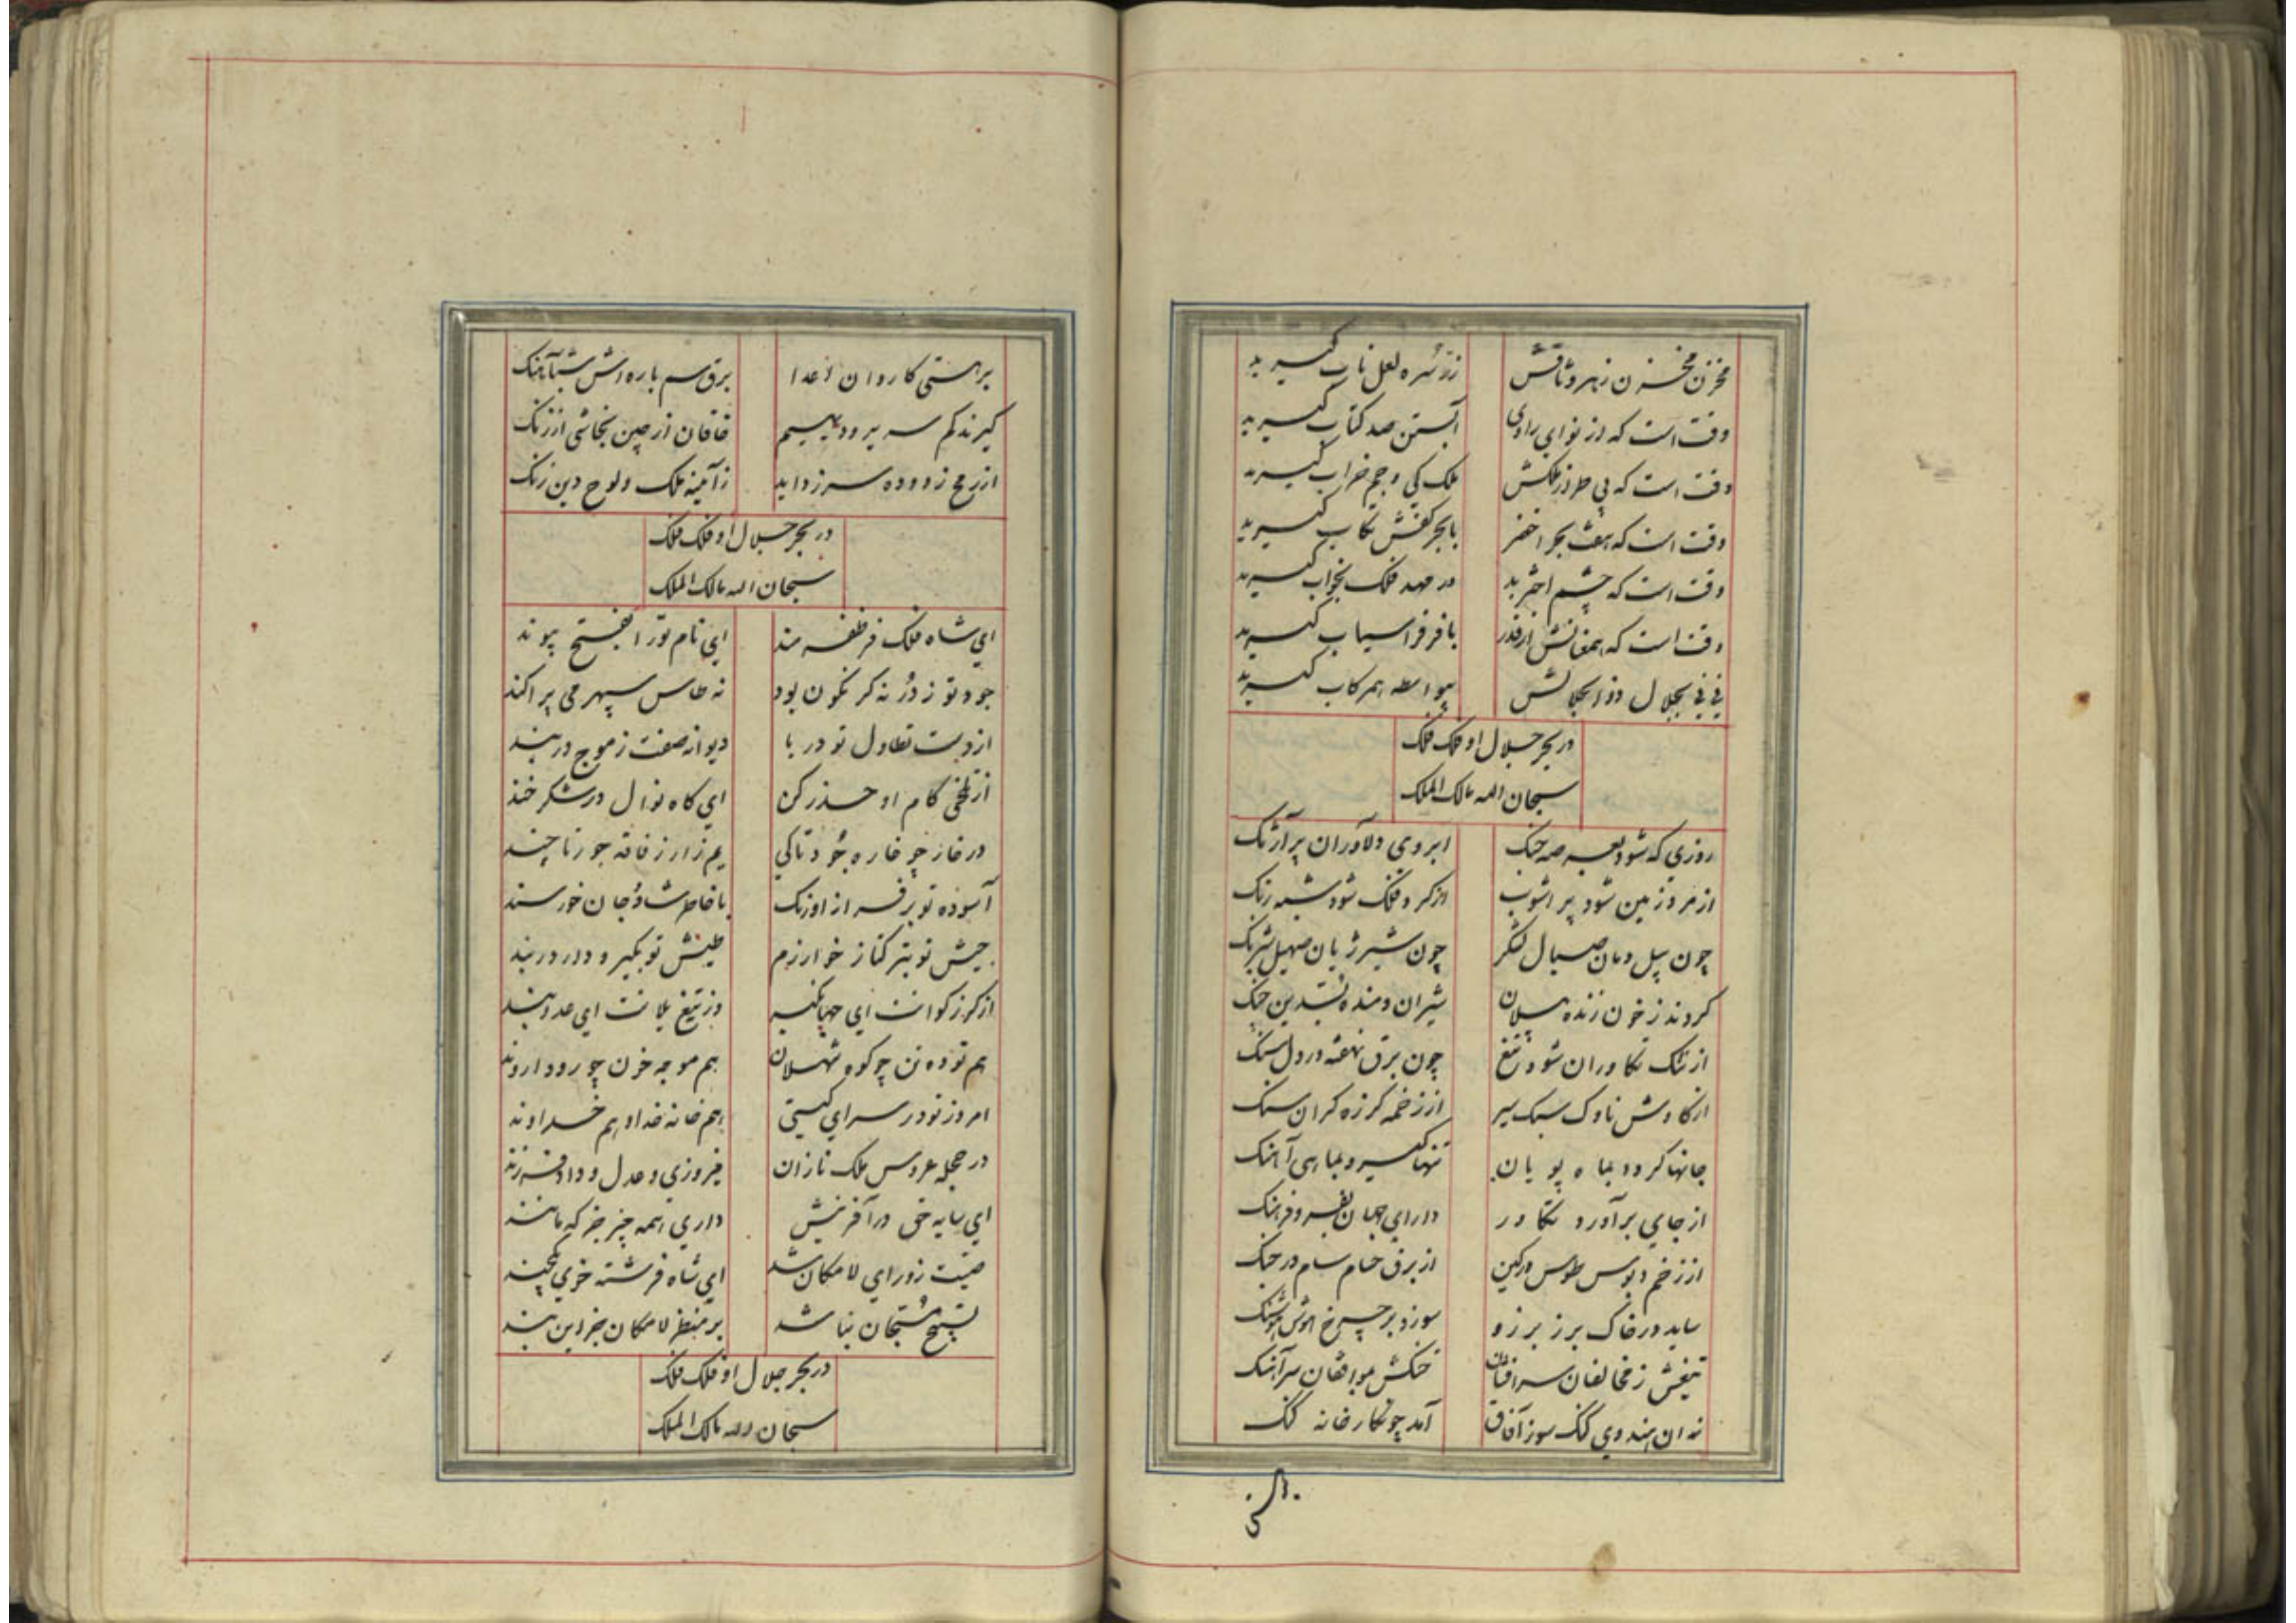 مخزن مخزن زهر وثاقش زر سُره لعل ناب گیرید
وقت است که از نوای رادی آبستن صد کتاب گیرید
وقت است که بی طراز ملکش ملک کی و جم خراب گیرید
وقت است که هفت بحر اخضر با بحر کفش سراب گیرید
وقت است که چشم اختر بد در مهد فلک بخواب گیرید
وقت است که همعنانش از قدر با فر فراسیاب گیرید
نی نی بجلال ذوالجلالش بیواسطه همرکاب گیرید
در بحر جلال او فلک فلک
سبحان الله مالک الملک
روزی که شود بعرصه جنگ ابروی دلاوران پر آژنگ
از مرد زمین شود پر آشوب از گرد فلک شود شبه رنگ
چون پیل دمان صیال لشکر چون شیر ژیان صهیل شبرنگ
گردند ز خون زنده پیلان شیران دمنده بسدین چنگ
از تنگ تکاوران شود تیغ چون برق نهفته در دل سنگ
از کاوش ناوک سبک سیر از زخمه گرزه گران سنگ
جانها گردد بباه پویان تنها گیرد بماهی آهنگ
از جای برآورد تکاور دارای جهان بفر و فرهنگ
از زخم دبوس طوس در کین از برق حسام سام در جنگ
ساید در خاک برز برزو سوزد بر چرخ هوش هوشنگ
تیغش ز مخالفان سرافشان خنگش موافقان سرآهنگ
نه آن هندوی گنگ سوز آفاق آمد چو نگارخانه گنگ
بر هستی کاروان اعدا برق سم باره اش شب آهنگ
گیرند کم سریر و دیهیم خاقان از چین نجاشی از زنگ
از رمح زدوده سر زداید ز آیینه ملک و لوح دین زنگ
در بحر جلال او فلک فلک
سبحان الله مالک الملک
ای شاه فلک فر ظفرمند ای نام تو را بفتح پیوند
جود تو ز در نه گر نگون بود نه طاس سپهر می پراکند
از دست تطاول تو دریا دیوانه صفت ز موج در بند
از تلخی کام او حذر کن ای گاه نوال در شکرخند
در خاز چو خاره جود تا کی یم زار ز فاقه جور تا چند
آسوده تو بر فراز اورنگ با خاطر شاد و جان خورسند
جیش تو بترکتاز خوارزم طیش تو بگیر و دار دربند
از گرز گوانت ای جهانگیر وز تیغ یلانت ای عدو بند
هم توده تن چو کوه ثهلان هم موجه خون چو رود اروند
امروز تو در سرای گیتی هم خانه خدا و هم خداوند
در حجله عروس ملک نازان فیروزی و عدل و داد فرزند
ای سایه حق در آفرینش داری همه چیز جز که مانند
صیتت ز ورای لامکان شد ای شاه فرشته خوی یکچند
تسبیح مسبحان نباشد بر منظر لامکان جز این بند
در بحر جلال او فلک فلک
سبحان الله مالک الملک